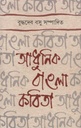 বুদ্ধদেব বসু সম্পাদিত
আধুনিক
বাংলা
কবিতা